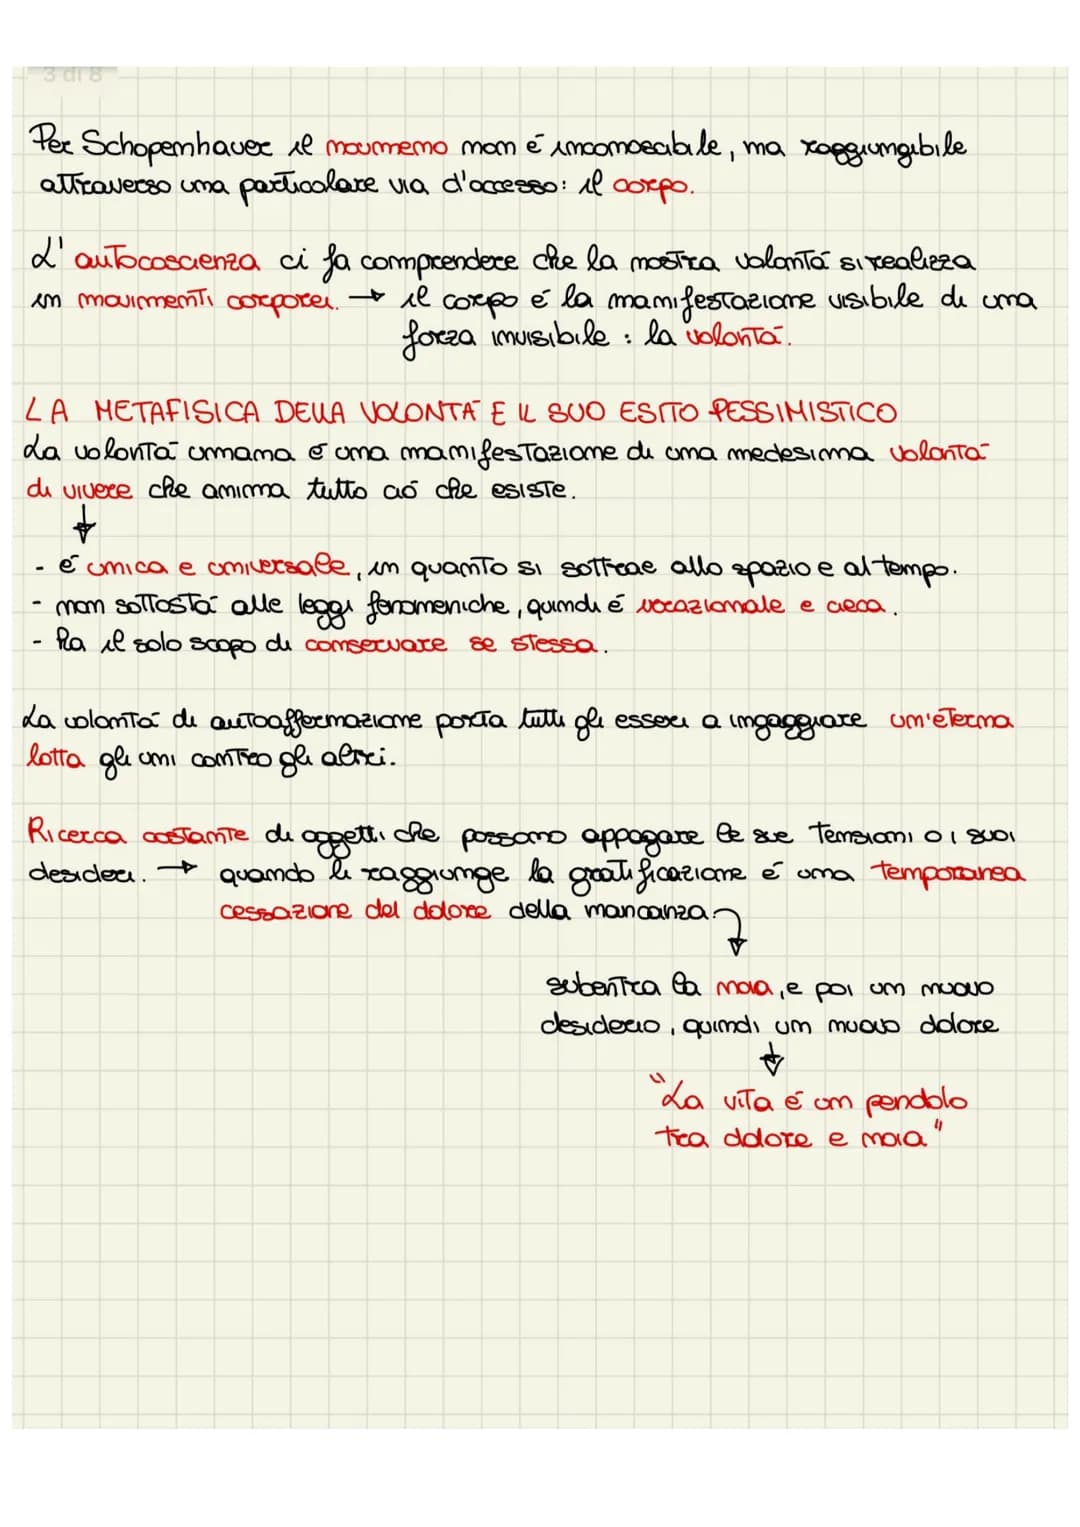 3 di 8
Per Schopenhauer il noumeno non é inconoscibile, ma raggiungibile
attraverso una particolare via d'accesso: il corpo.
L'autocoscienza ci fa comprendere che la nostra volontá si realizza
in movimenti corporei. → il corpo é la manifestazione visibile di una
forza invisibile : la volontá.
LA METAFISICA DELLA VOLONTÁ E IL SUO ESITO PESSIMISTICO
La volontá umana é una manifestazione di una medesima volontá
di vivere che anima tutto ció che esiste.
↓
- é unica e universale, in quanto si sottrae allo spazio e al tempo.
- non sottostá alle leggi fenomeniche, quindi é irrazionale e cieca.
- ha il solo scopo di conservare se stessa.
La volontá di autoaffermazione porta tutti gli esseri a ingaggiare un'eterna
lotta gli uni contro gli altri.
Ricerca costante di oggetti che possano appagare le sue tensioni o i suoi
desideri. → quando li raggiunge la gratificazione é una temporanea
cessazione del dolore della mancanza.
subentra la noia, e poi un nuovo
desiderio, quindi un nuovo dolore
↓
"La vita é un pendolo
tra dolore e noia"